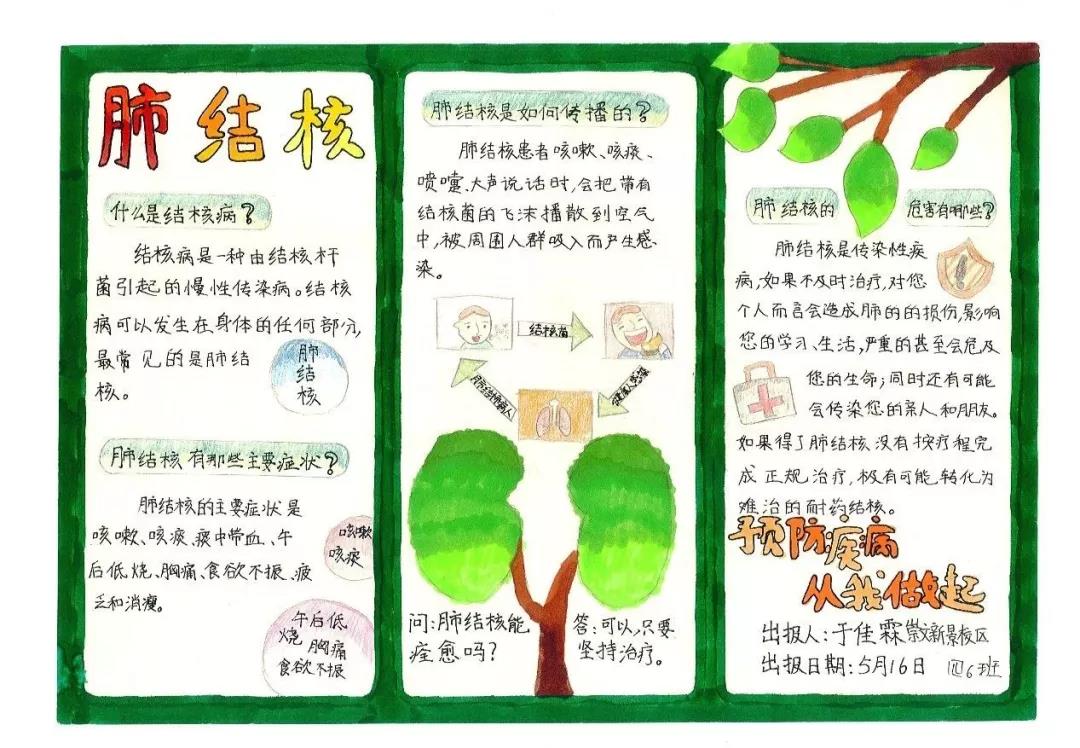 肺结核
什么是结核病?
结核病是一种由结核杆
菌引起的慢性传染病。结核
病可以发生在身体的任何部分,
最常见的是肺结
核。
肺
结
核
肺结核有那些主要症状?
肺结核的主要症状是
咳嗽、咳痰、痰中带血、午
后低烧、胸痛、食欲不振、疲
乏和消瘦。
咳嗽
咳痰
午后低
烧 胸痛
食欲不振
肺结核是如何传播的?
肺结核患者咳嗽、咳痰、
喷嚏、大声说话时,会把带有
结核菌的飞沫播散到空气
中,被周围人群吸入而产生感
染。
结核菌
健康人感染
肺结核病人
问:肺结核能
痊愈吗?
答:可以,只要
坚持治疗。
肺结核的 危害有哪些?
肺结核是传染性疾
病,如果不及时治疗,对您
个人而言会造成肺的的损伤,影响
您的学习、生活,严重的甚至会危及
您的生命;同时还有可能
会传染您的亲人和朋友。
如果得了肺结核没有按疗程完
成正规治疗,极有可能转化为
难治的耐药结核。
预防疾病
从我做起
出报人:于佳霖崇新景校区
出报日期:5月16日 四6班